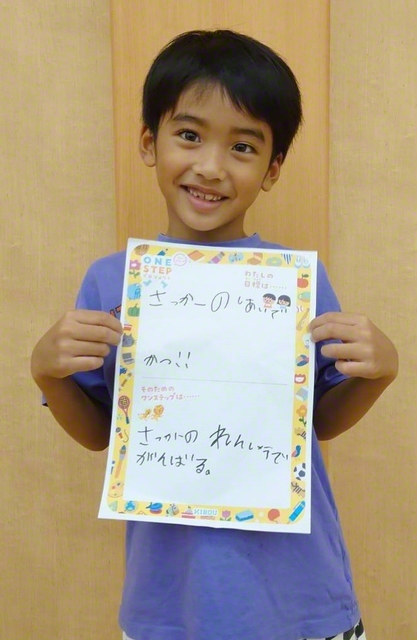 ONE
STEP
わたしの
目標は……
さっかーの しあいで
かつ!!
そのための
ワンステップは……
さっかーの れんしゅうで
がんばる。